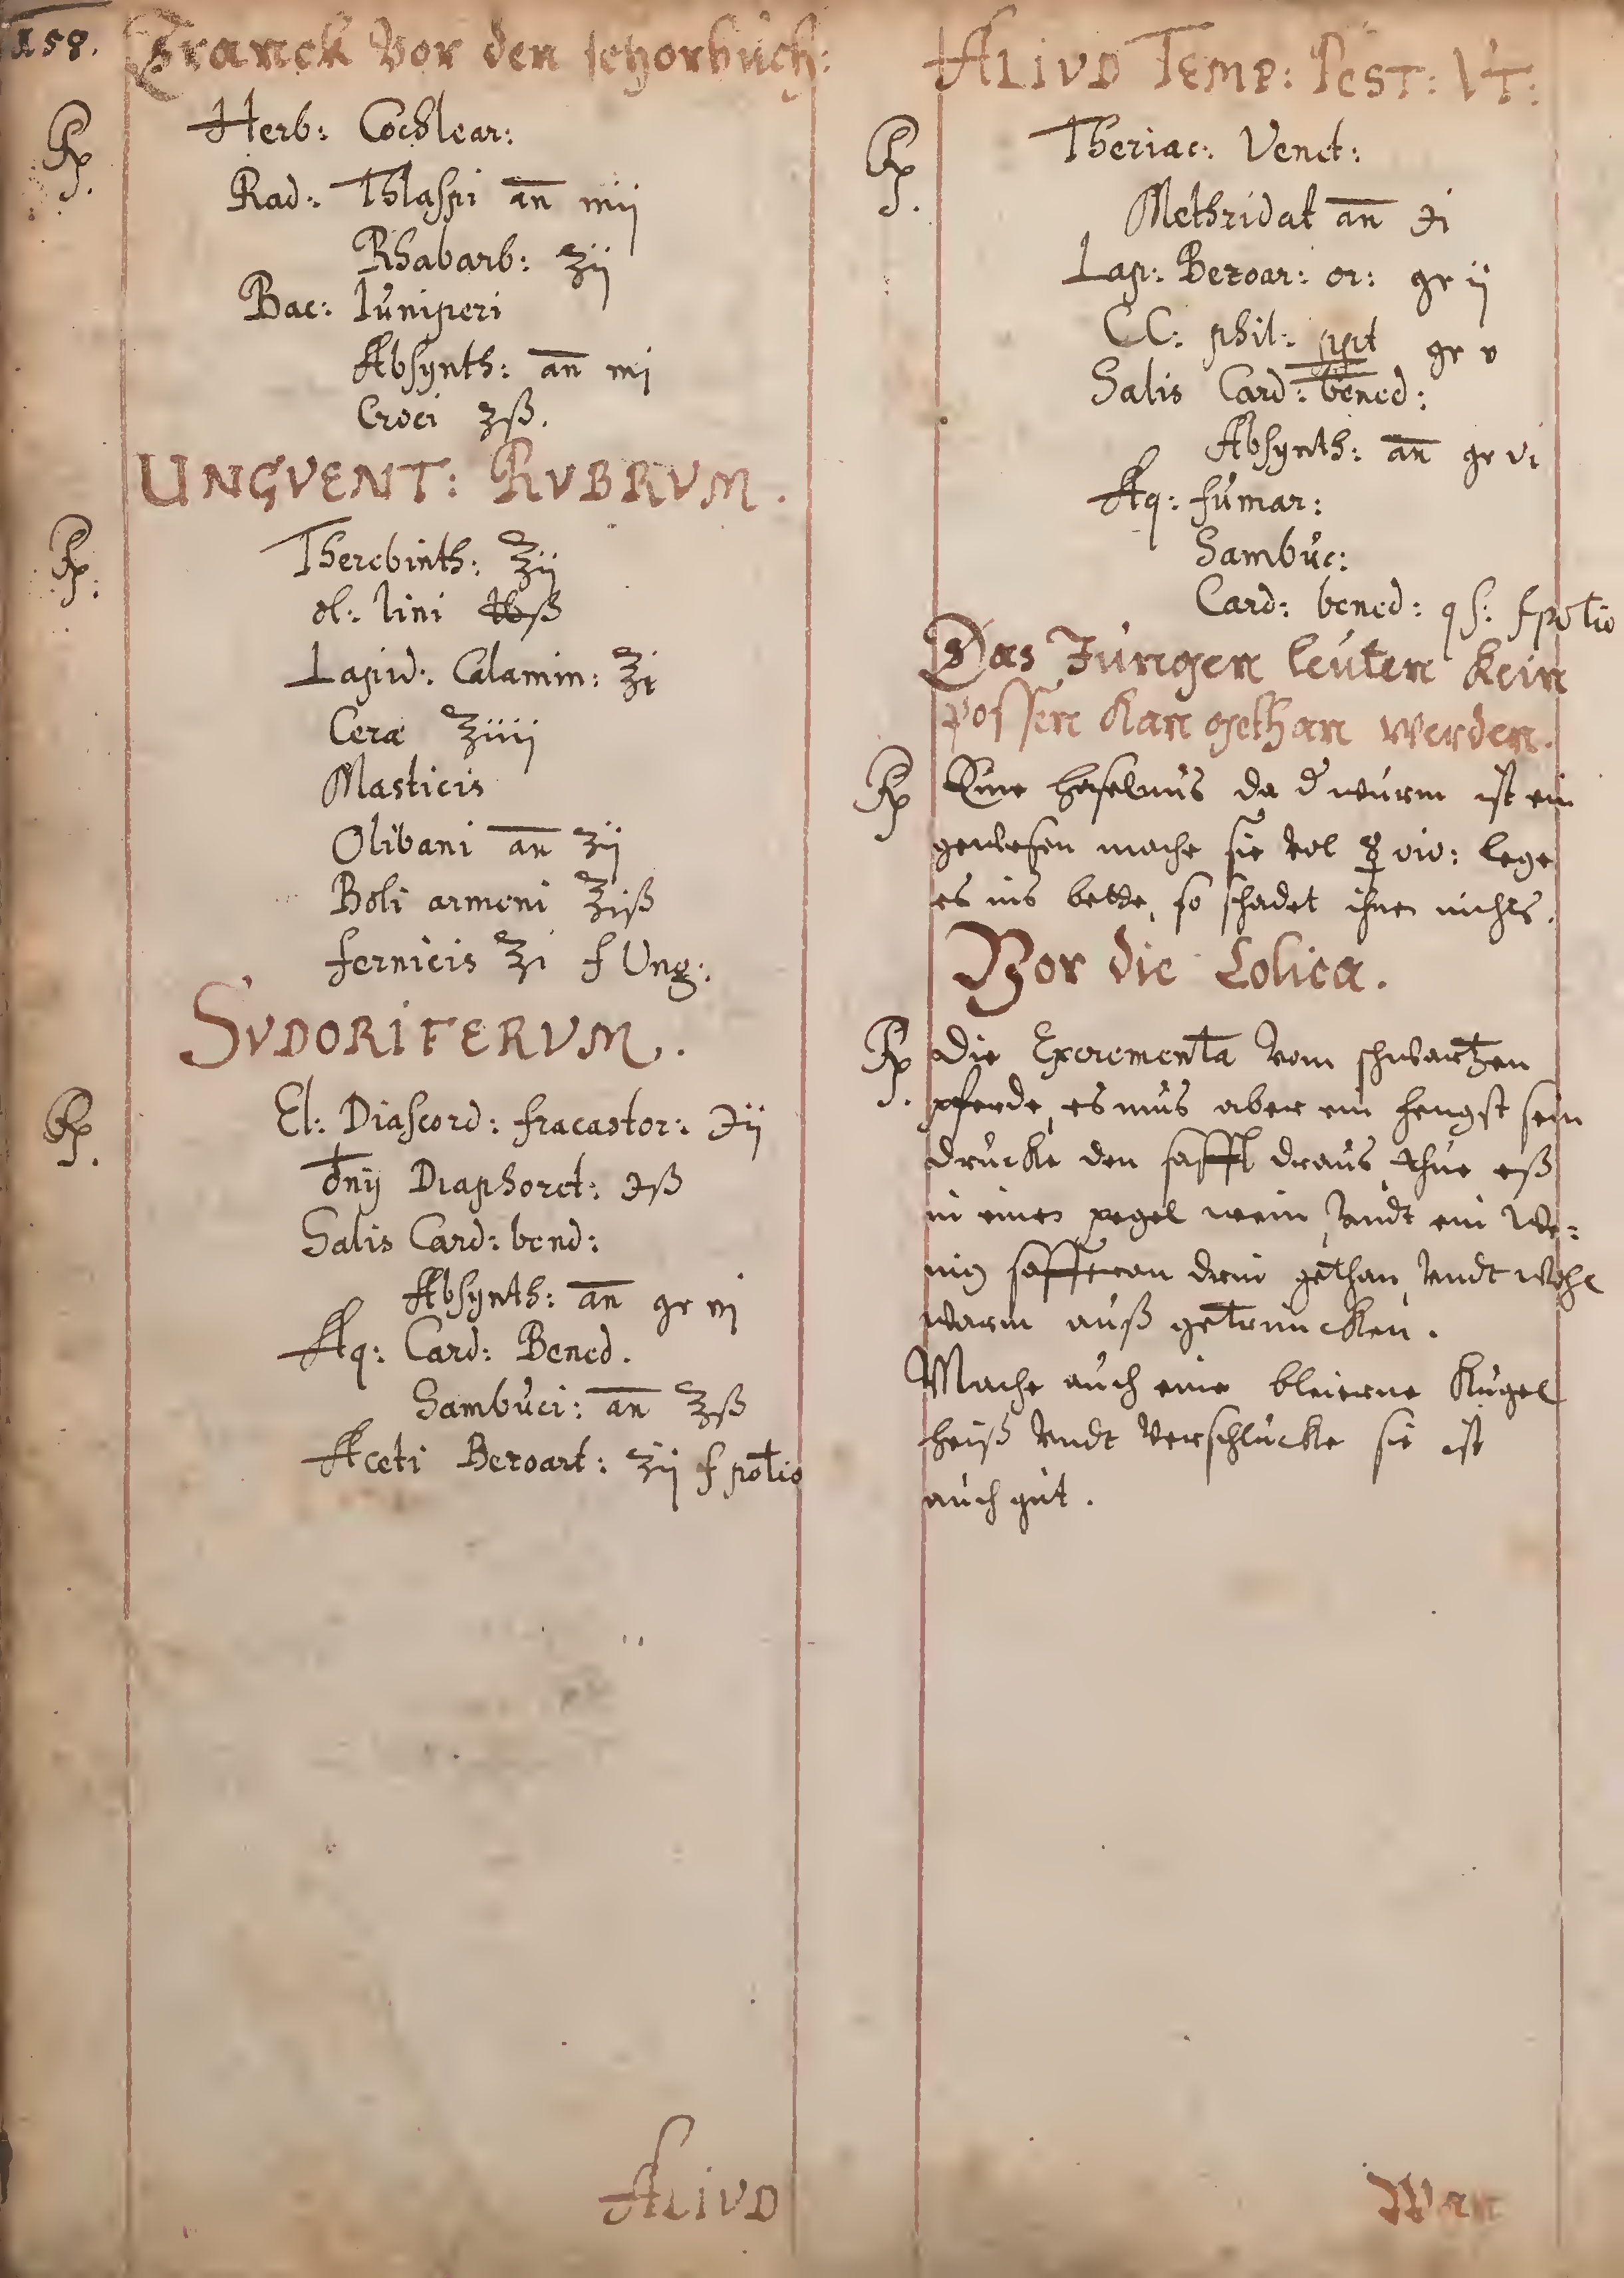 158.
Tranck Vor den schorbuch:
Rp. Herb: Cochlear:
Rad: Thlaspi an̄ mij
Rhabarb: ℥ij
Bac: Iuniperi
Absynth: an̄ mj
Croci ʒß.
UNGVENT: RVBRVM.
Rp: Therebinth: ℥ij
ol: lini ℔ß
Lapid: Calamin: ℥i
Cera ℥iiij
Masticis
Olibani an̄ ʒij
Boli armeni ℥iß
fernicis ℥i f Ung:
SVDORIFERVM.
Rp. El: Diascord: fracastor: ℈ij
♁nij Diaphoret: ℈ß
Salis Card: bend:
Absynth: an̄ gr vj
Aq: Card: Bened.
Sambuci: an̄ ℥ß
Aceti Bezoart: ʒij f potio
ALIVD
ALIVD TEMP: PEST: VT:
Rp. Theriac: Venet:
Methridat an̄ ℈i
Lap: Bezoar: or: gr ij
CC: phil: ppt gr v
Salis Card: bened:
Absynth: an̄ gr vi
Aq: fumar:
Sambuc:
Card: bened: q s: f potio
Das Jungen leuten kein
possen kan gethan werden.
Rp Eine haselnus da d' wurm ist ein
gewesen mache sie vol ☿ viv: lege
es ins bette, so schadet ihnen nichts.
Vor die Colica.
Rp. Die Excrementa vom schwartzen
pferde, es mus aber ein hengst sein
drucke den safft draus, thue eß
in einen pegel wein, vndt ein we:
nig safferan drin gethan, vndt wohl
warm auß getruncken.
Mache auch eine bleierne kugel
heiß vndt verschlucke sie ist
auch gut.
Wan